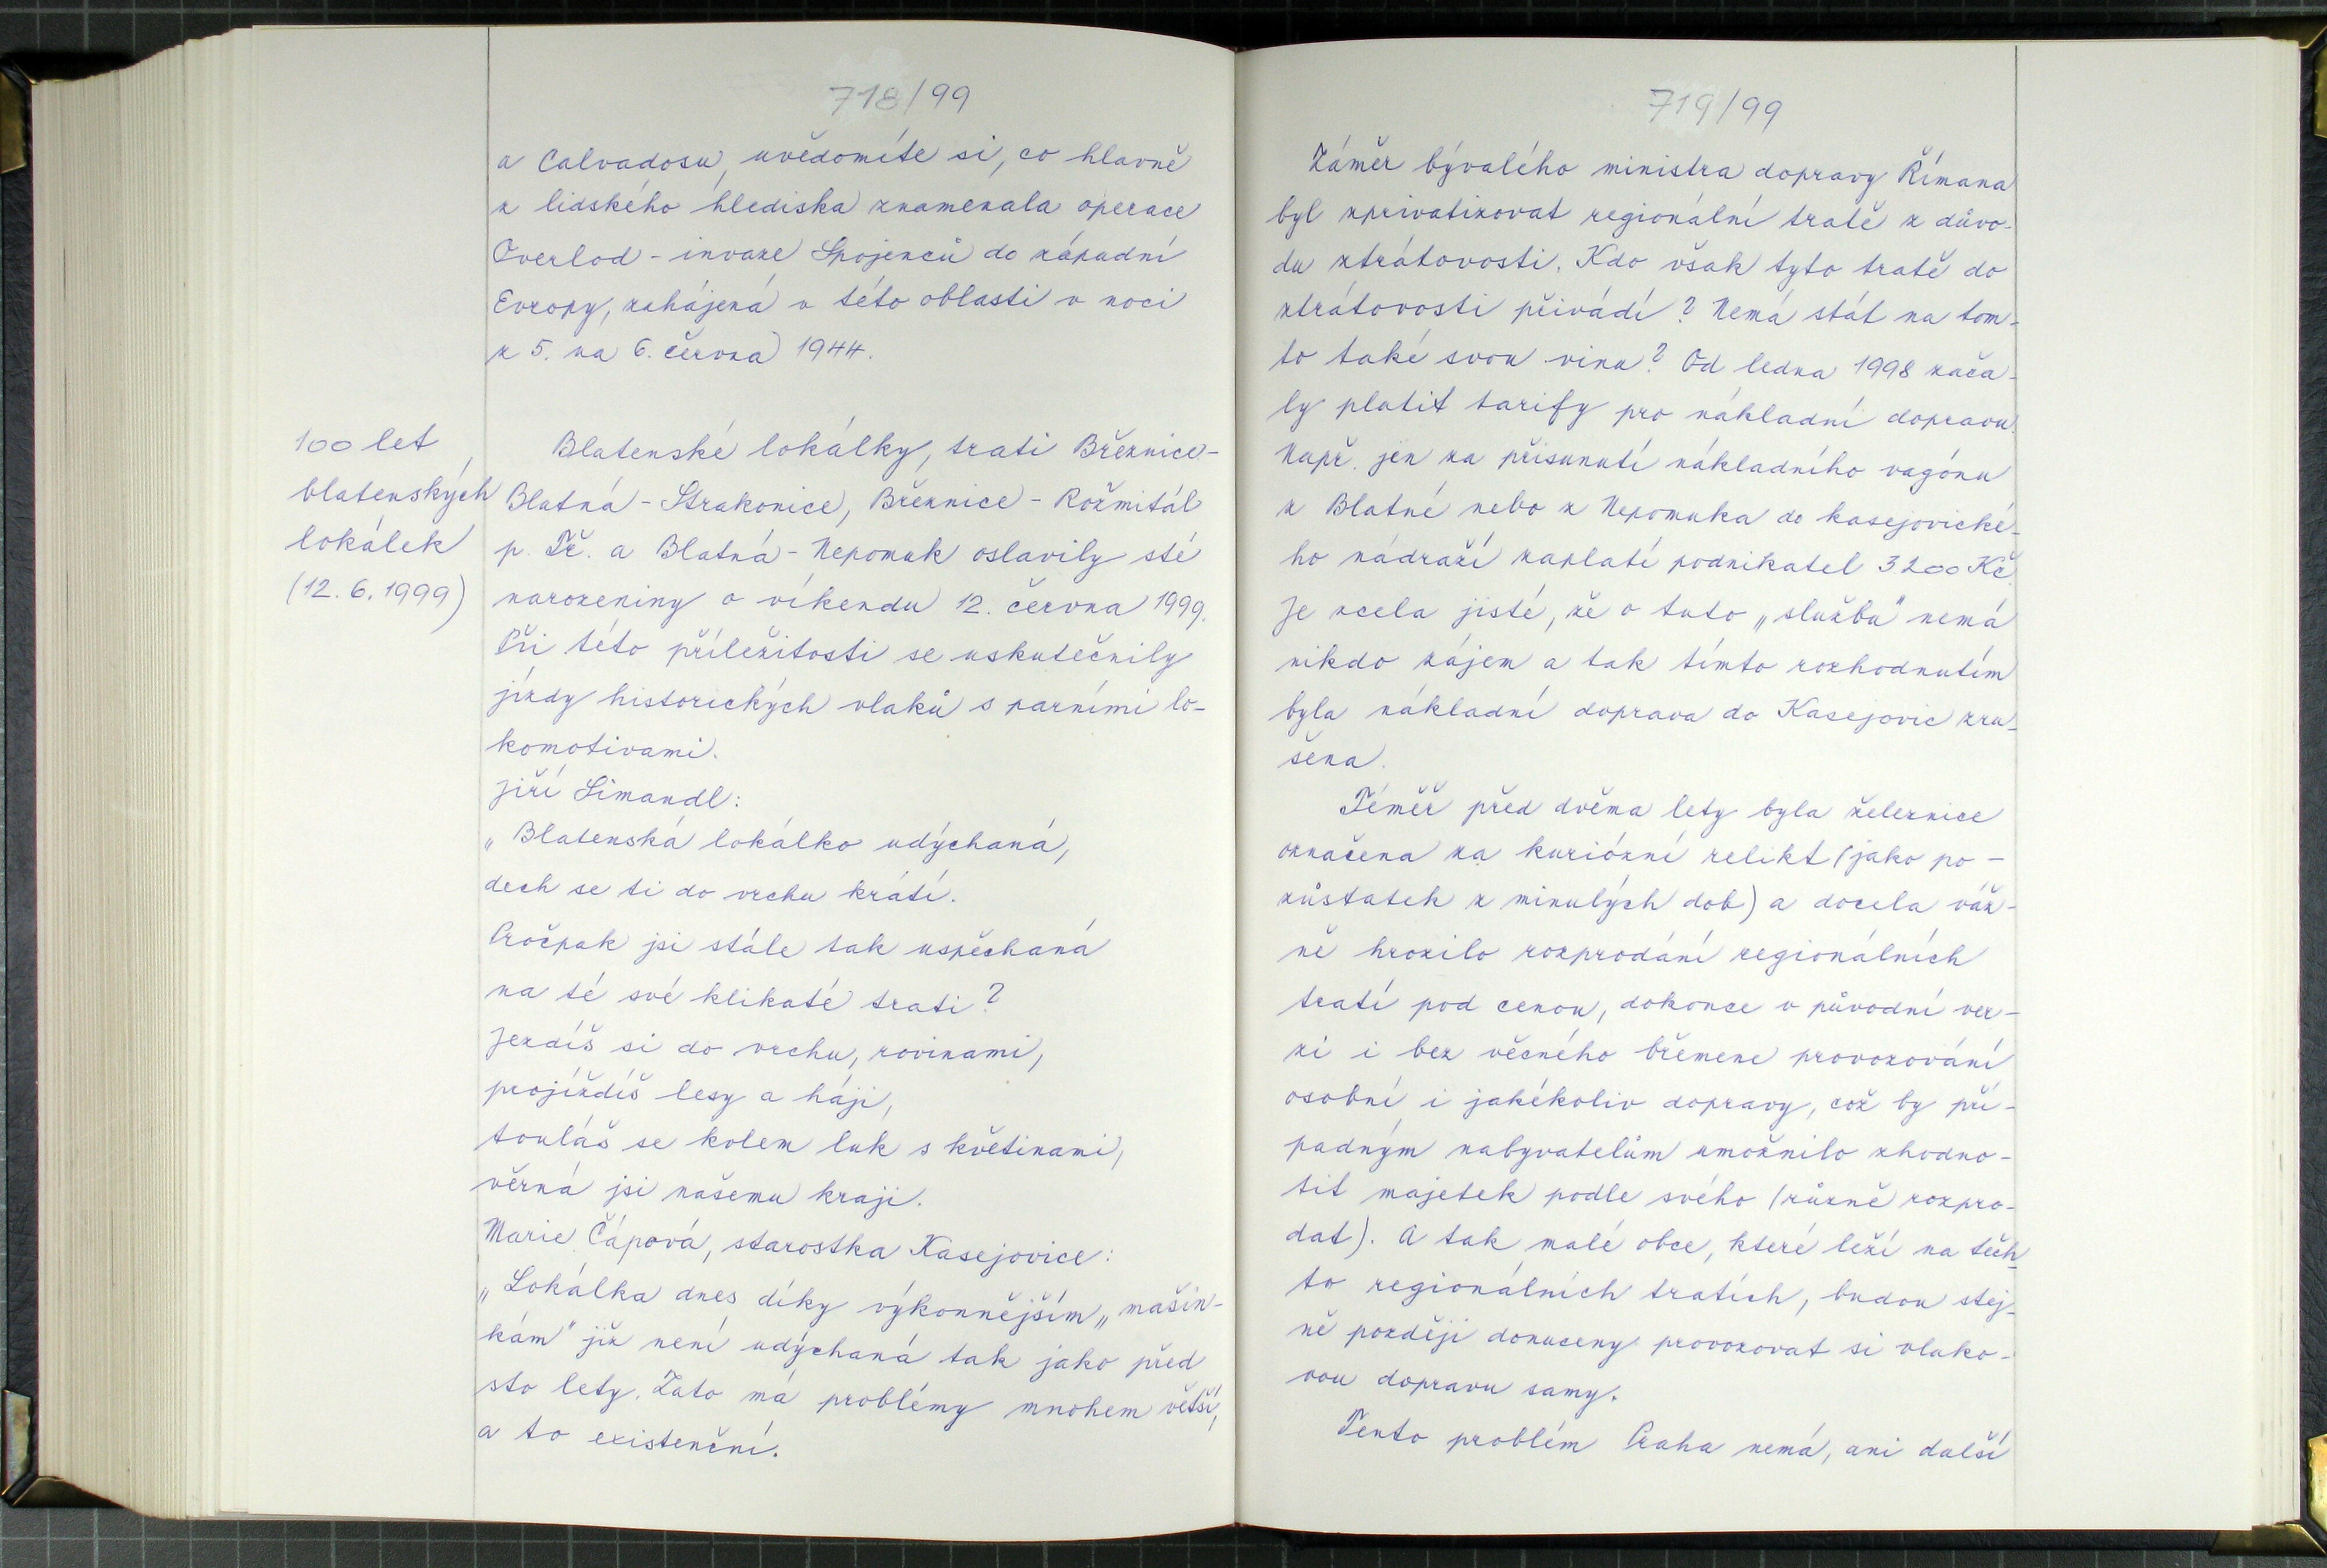 718/99
a Calvadosu, uvědomíte si, co hlavně
z lidského hlediska znamenala operace
Overlod - invaze Spojenců do západní
Evropy, zahájená v této oblasti v noci
z 5. na 6. června 1944.
100 let
blatenských
lokálek
(12. 6. 1999)
Blatenské lokálky, trati Březnice -
Blatná - Strakonice, Březnice - Rožmitál
p. Tř. a Blatná - Nepomuk oslavily sté
narozeniny o víkendu 12. června 1999.
Při této příležitosti se uskutečnily
jízdy historických vlaků s parními lo-
komotivami.
Jiří Simandl:
„Blatenská lokálko udýchaná,
dech se ti do vrchu krátí.
Pročpak jsi stále tak uspěchaná
na té své klikaté trati?
Jezdíš si do vrchu, rovinami,
projíždíš lesy a háji,
touláš se kolem luk s květinami,
věrná jsi našemu kraji.
Marie Čápová, starostka Kasejovice:
„Lokálka dnes díky výkonnějším „mašin-
kám" již není udýchaná tak jako před
sto lety. Zato má problémy mnohem větší,
a to existenční.
719/99
Záměr bývalého ministra dopravy Římana
byl zprivatizovat regionální tratě z důvo-
du ztrátovosti. Kdo však tyto tratě do
ztrátovosti přivádí? Nemá stát na tom-
to také svou vinu? Od ledna 1998 zača-
ly platit tarify pro nákladní dopravu.
Např. jen za přisunutí nákladního vagónu
z Blatné nebo z Nepomuka do kasejovické-
ho nádraží zaplatí podnikatel 3200 Kč.
Je zcela jisté, že o tuto „službu" nemá
nikdo zájem a tak tímto rozhodnutím
byla nákladní doprava do Kasejovic zru-
šena.
Téměř před dvěma lety byla železnice
označena za kuriózní relikt (jako po-
zůstatek z minulých dob) a docela váž-
ně hrozilo rozprodání regionálních
tratí pod cenou, dokonce v původní ver-
zi i bez věcného břemene provozování
osobní i jakékoliv dopravy, což by pří-
padným nabyvatelům umožnilo zhodno-
tit majetek podle svého (různě rozpro-
dat). A tak malé obce, které leží na těch-
to regionálních tratích, budou stej-
ně později donuceny provozovat si vlako-
vou dopravu samy.
Tento problém Praha nemá, ani další